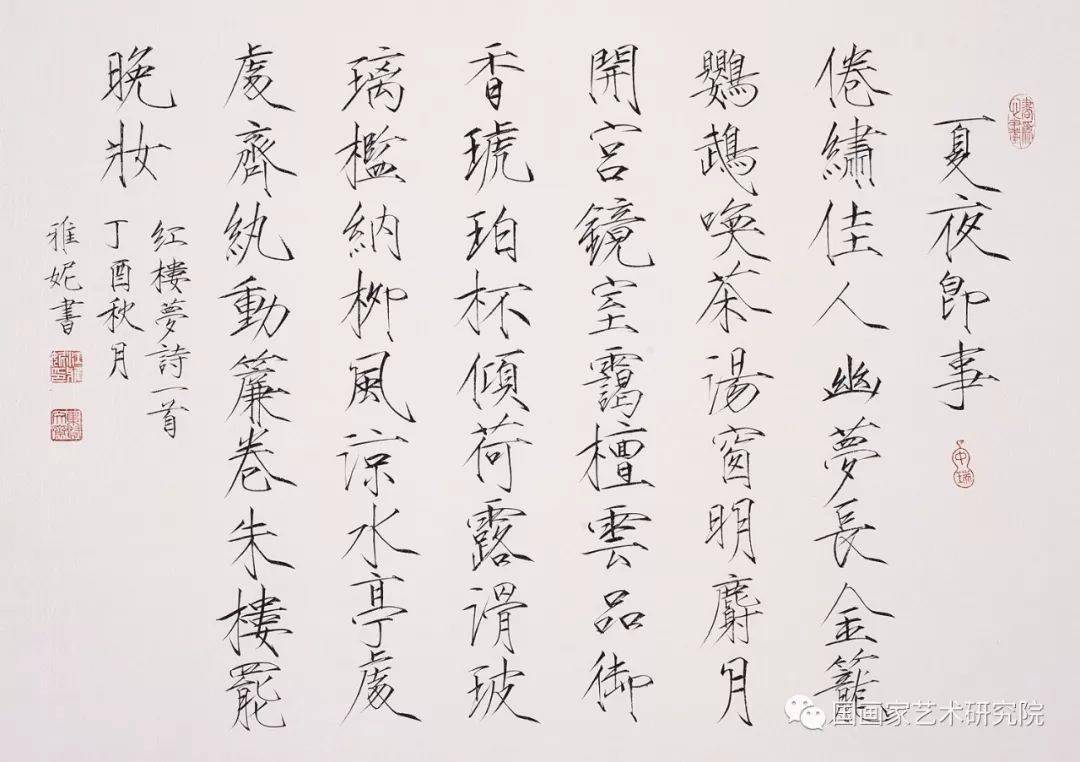 夏夜即事
倦繡佳人幽夢長金籠
鸚鵡喚茶湯窗明麝月
開宮鏡室靄檀雲品御
香琥珀杯傾荷露滑玻
璃檻納柳風涼水亭處
處齊紈動簾卷朱樓罷
晚妝
红樓夢詩一首
丁酉秋月
雅妮書
国画家艺术研究院